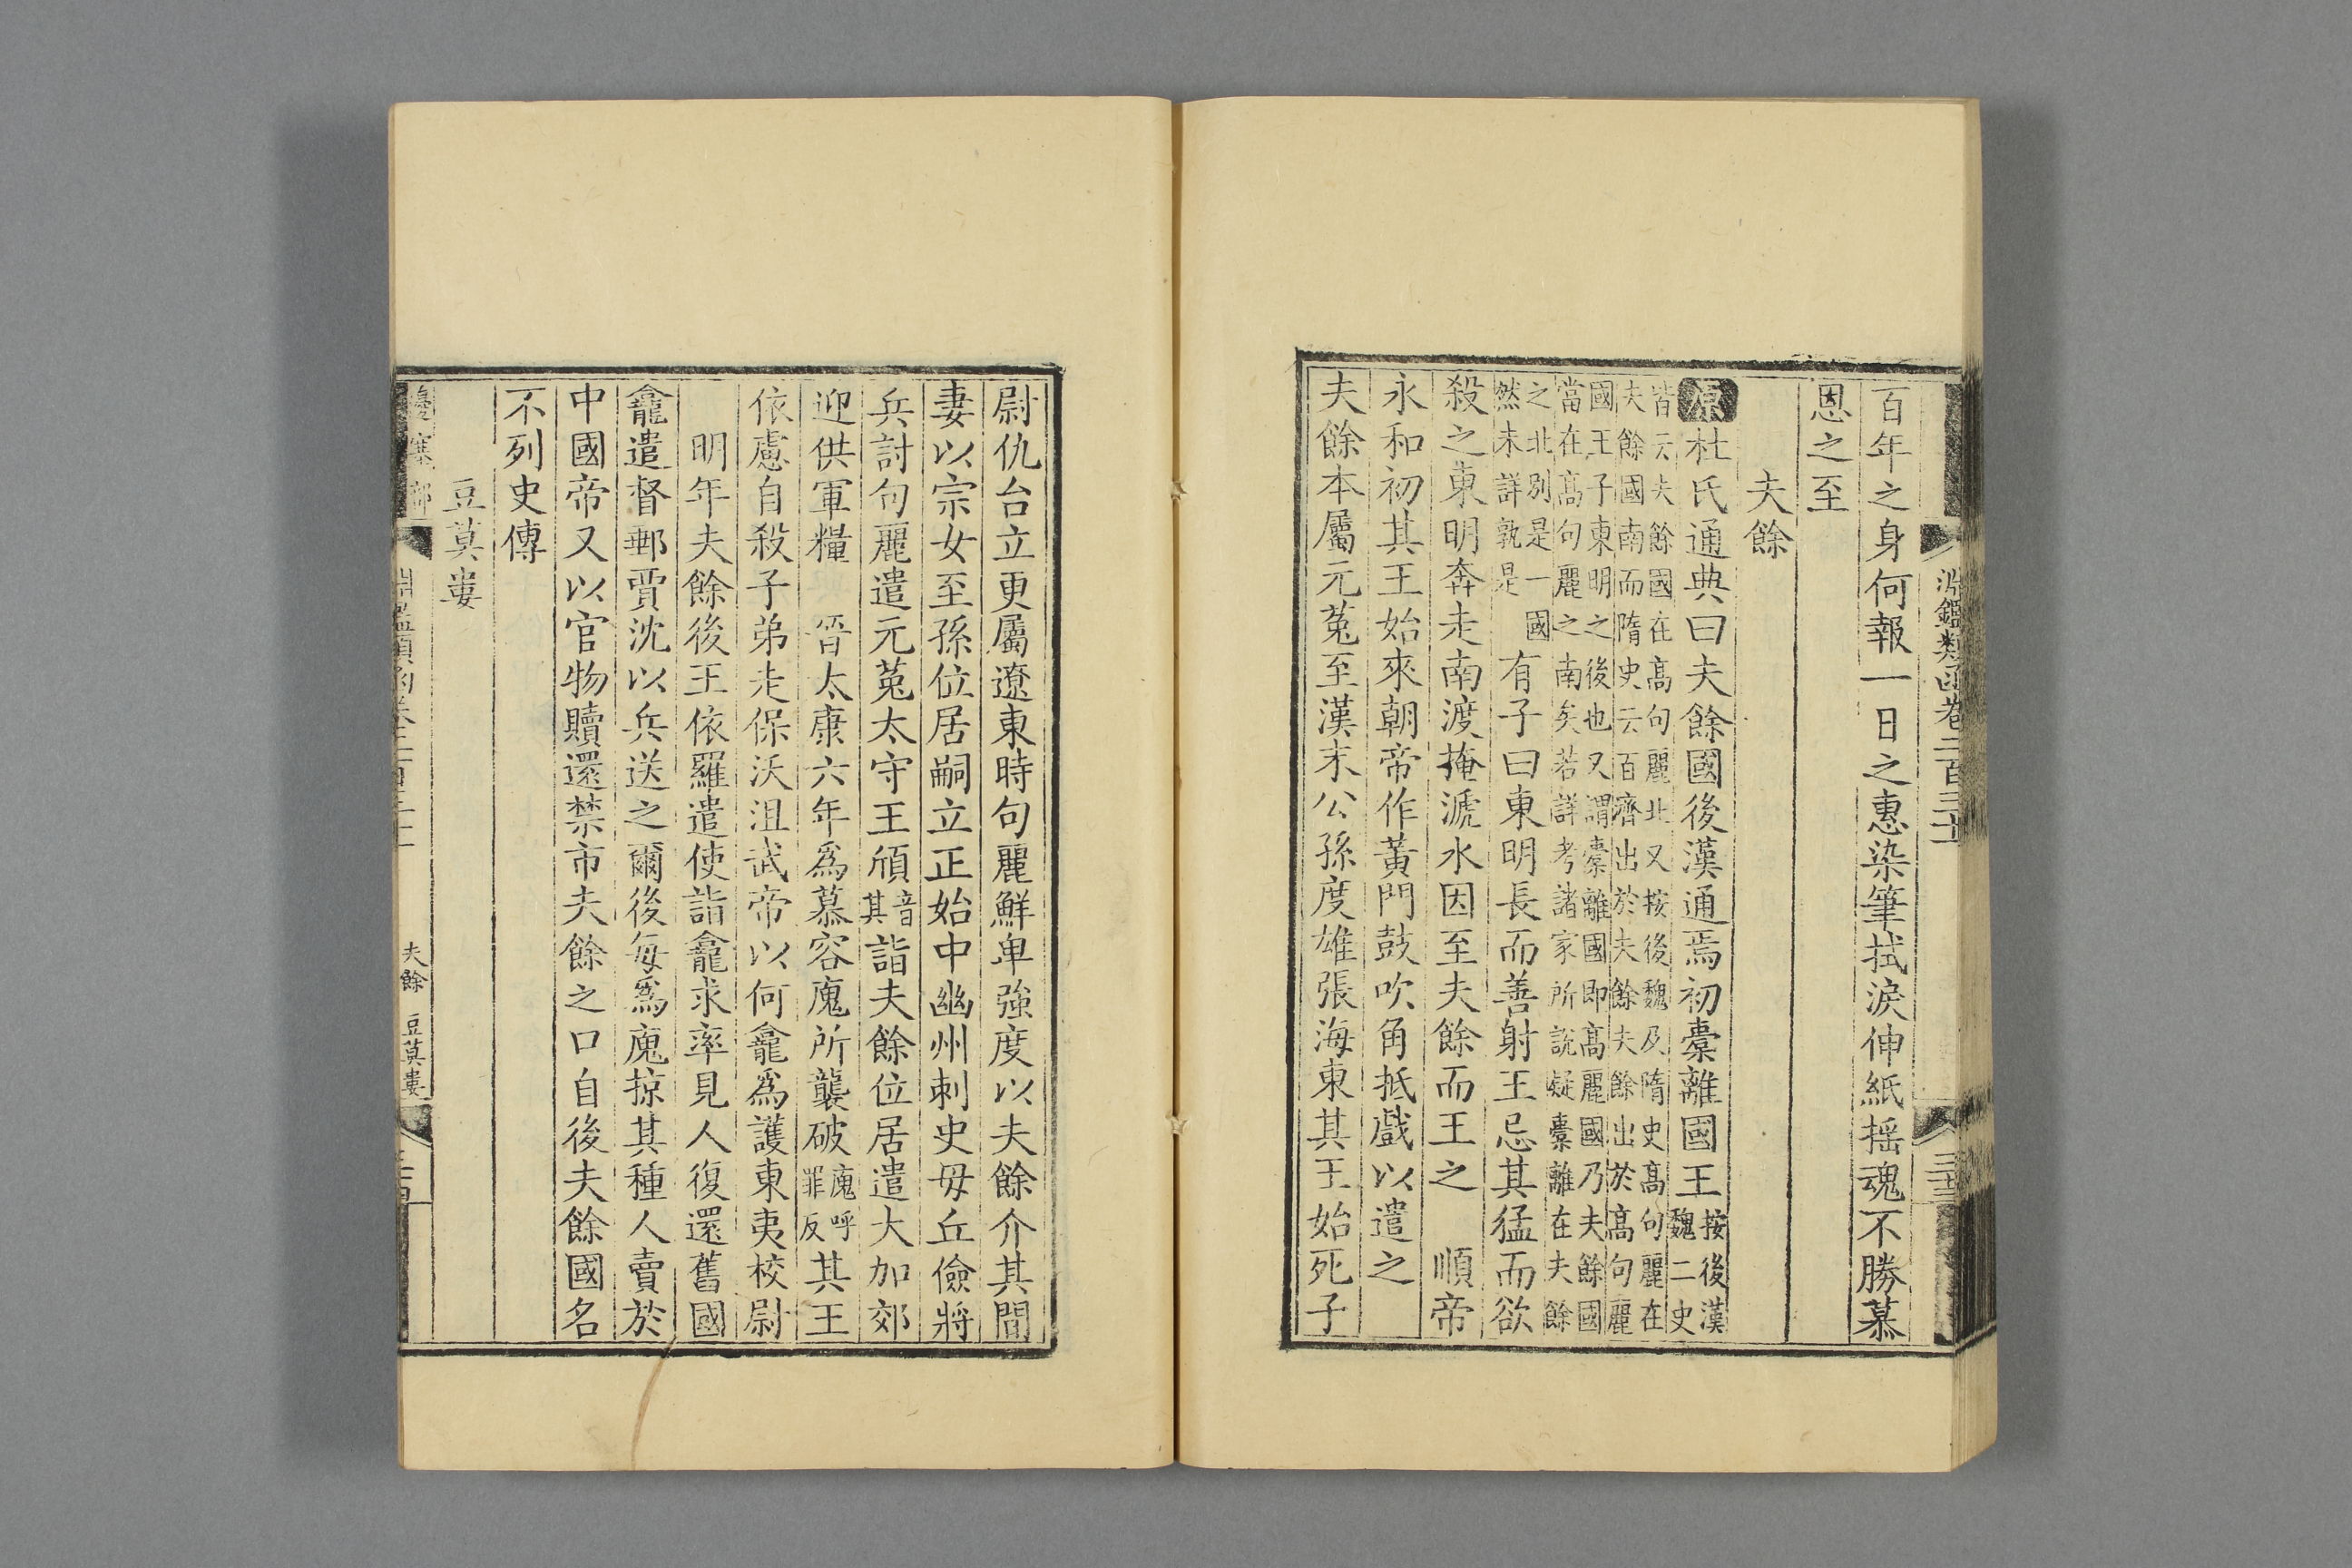 淵鑑類函卷二百三十
百年之身何報一日之惠染筆拭淚伸紙摇魂不勝慕
恩之至
夫餘
原杜氏通典曰夫餘國後漢通焉初橐離國王按後漢魏二史
皆云夫餘國在高句麗北又按後魏及隋史高句麗在
夫餘國南而隋史云百濟出於夫餘夫餘出於高句麗
國王子東明之後也又謂橐離國即高麗國乃夫餘國
當在高句麗之南矣若詳考諸家所說疑橐離在夫餘
之北别是一國
然未詳孰是
有子曰東明長而善射王忌其猛而欲
殺之東明奔走南渡掩㴲水因至夫餘而王之 順帝
永和初其王始來朝帝作黃門鼓吹角抵戲以遣之
夫餘本屬元菟至漢末公孫度雄張海東其王始死子
尉仇台立更屬遼東時句麗鮮卑強度以夫餘介其間
妻以宗女至孫位居嗣立正始中幽州刺史毋丘儉將
兵討句麗遣元菟太守王頎音其詣夫餘位居遣大加郊
迎供軍糧 晉太康六年爲慕容廆所襲破廆呼罪反其王
依慮自殺子弟走保沃沮武帝以何龕爲護東夷校尉
明年夫餘後王依羅遣使詣龕求率見人復還舊國
龕遣督郵賈沈以兵送之爾後每爲廆掠其種人賣於
中國帝又以官物贖還禁市夫餘之口自後夫餘國名
不列史傳
豆莫婁
邊塞部
夫餘 豆莫婁